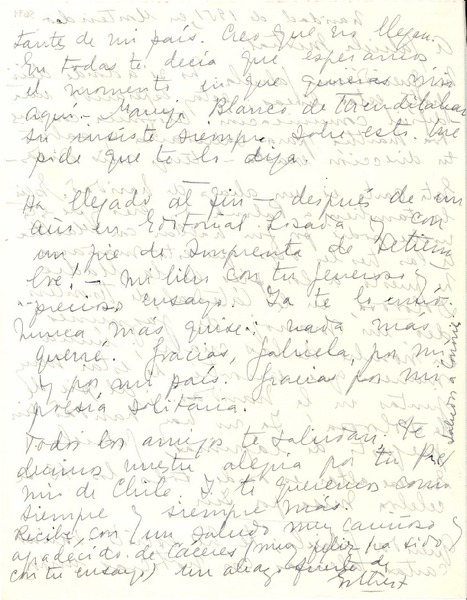 tante de mi país. Creo que no llegan.
En todas te decía que esperamos
el momento en que quieras irnos
aquí - Blanco de
su insiste siempre sobre esto. Me
pide que te lo diga.
Ha llegado al fin - después de un
año en Editorial Losada y con
un pie de Imprenta de Setiem
bre! - mi libro con tu generoso y
precioso ensayo. Ya te lo envío.
Nunca más quise; nada más
querré. Gracias, Gabriela, por mí
y por mi país. Gracias por mi
poesía solitaria.
Todos los amigos te saludan, te
decimos nuestra alegría por tu Pre
mio de Chile. Y te queremos como
siempre y siempre más.
Recibe, con un saludo muy cariñoso y
agradecido de Cáceres (muy feliz ha sido
con tu ensayo) un abrazo fuerte de
Esther
Saludos a